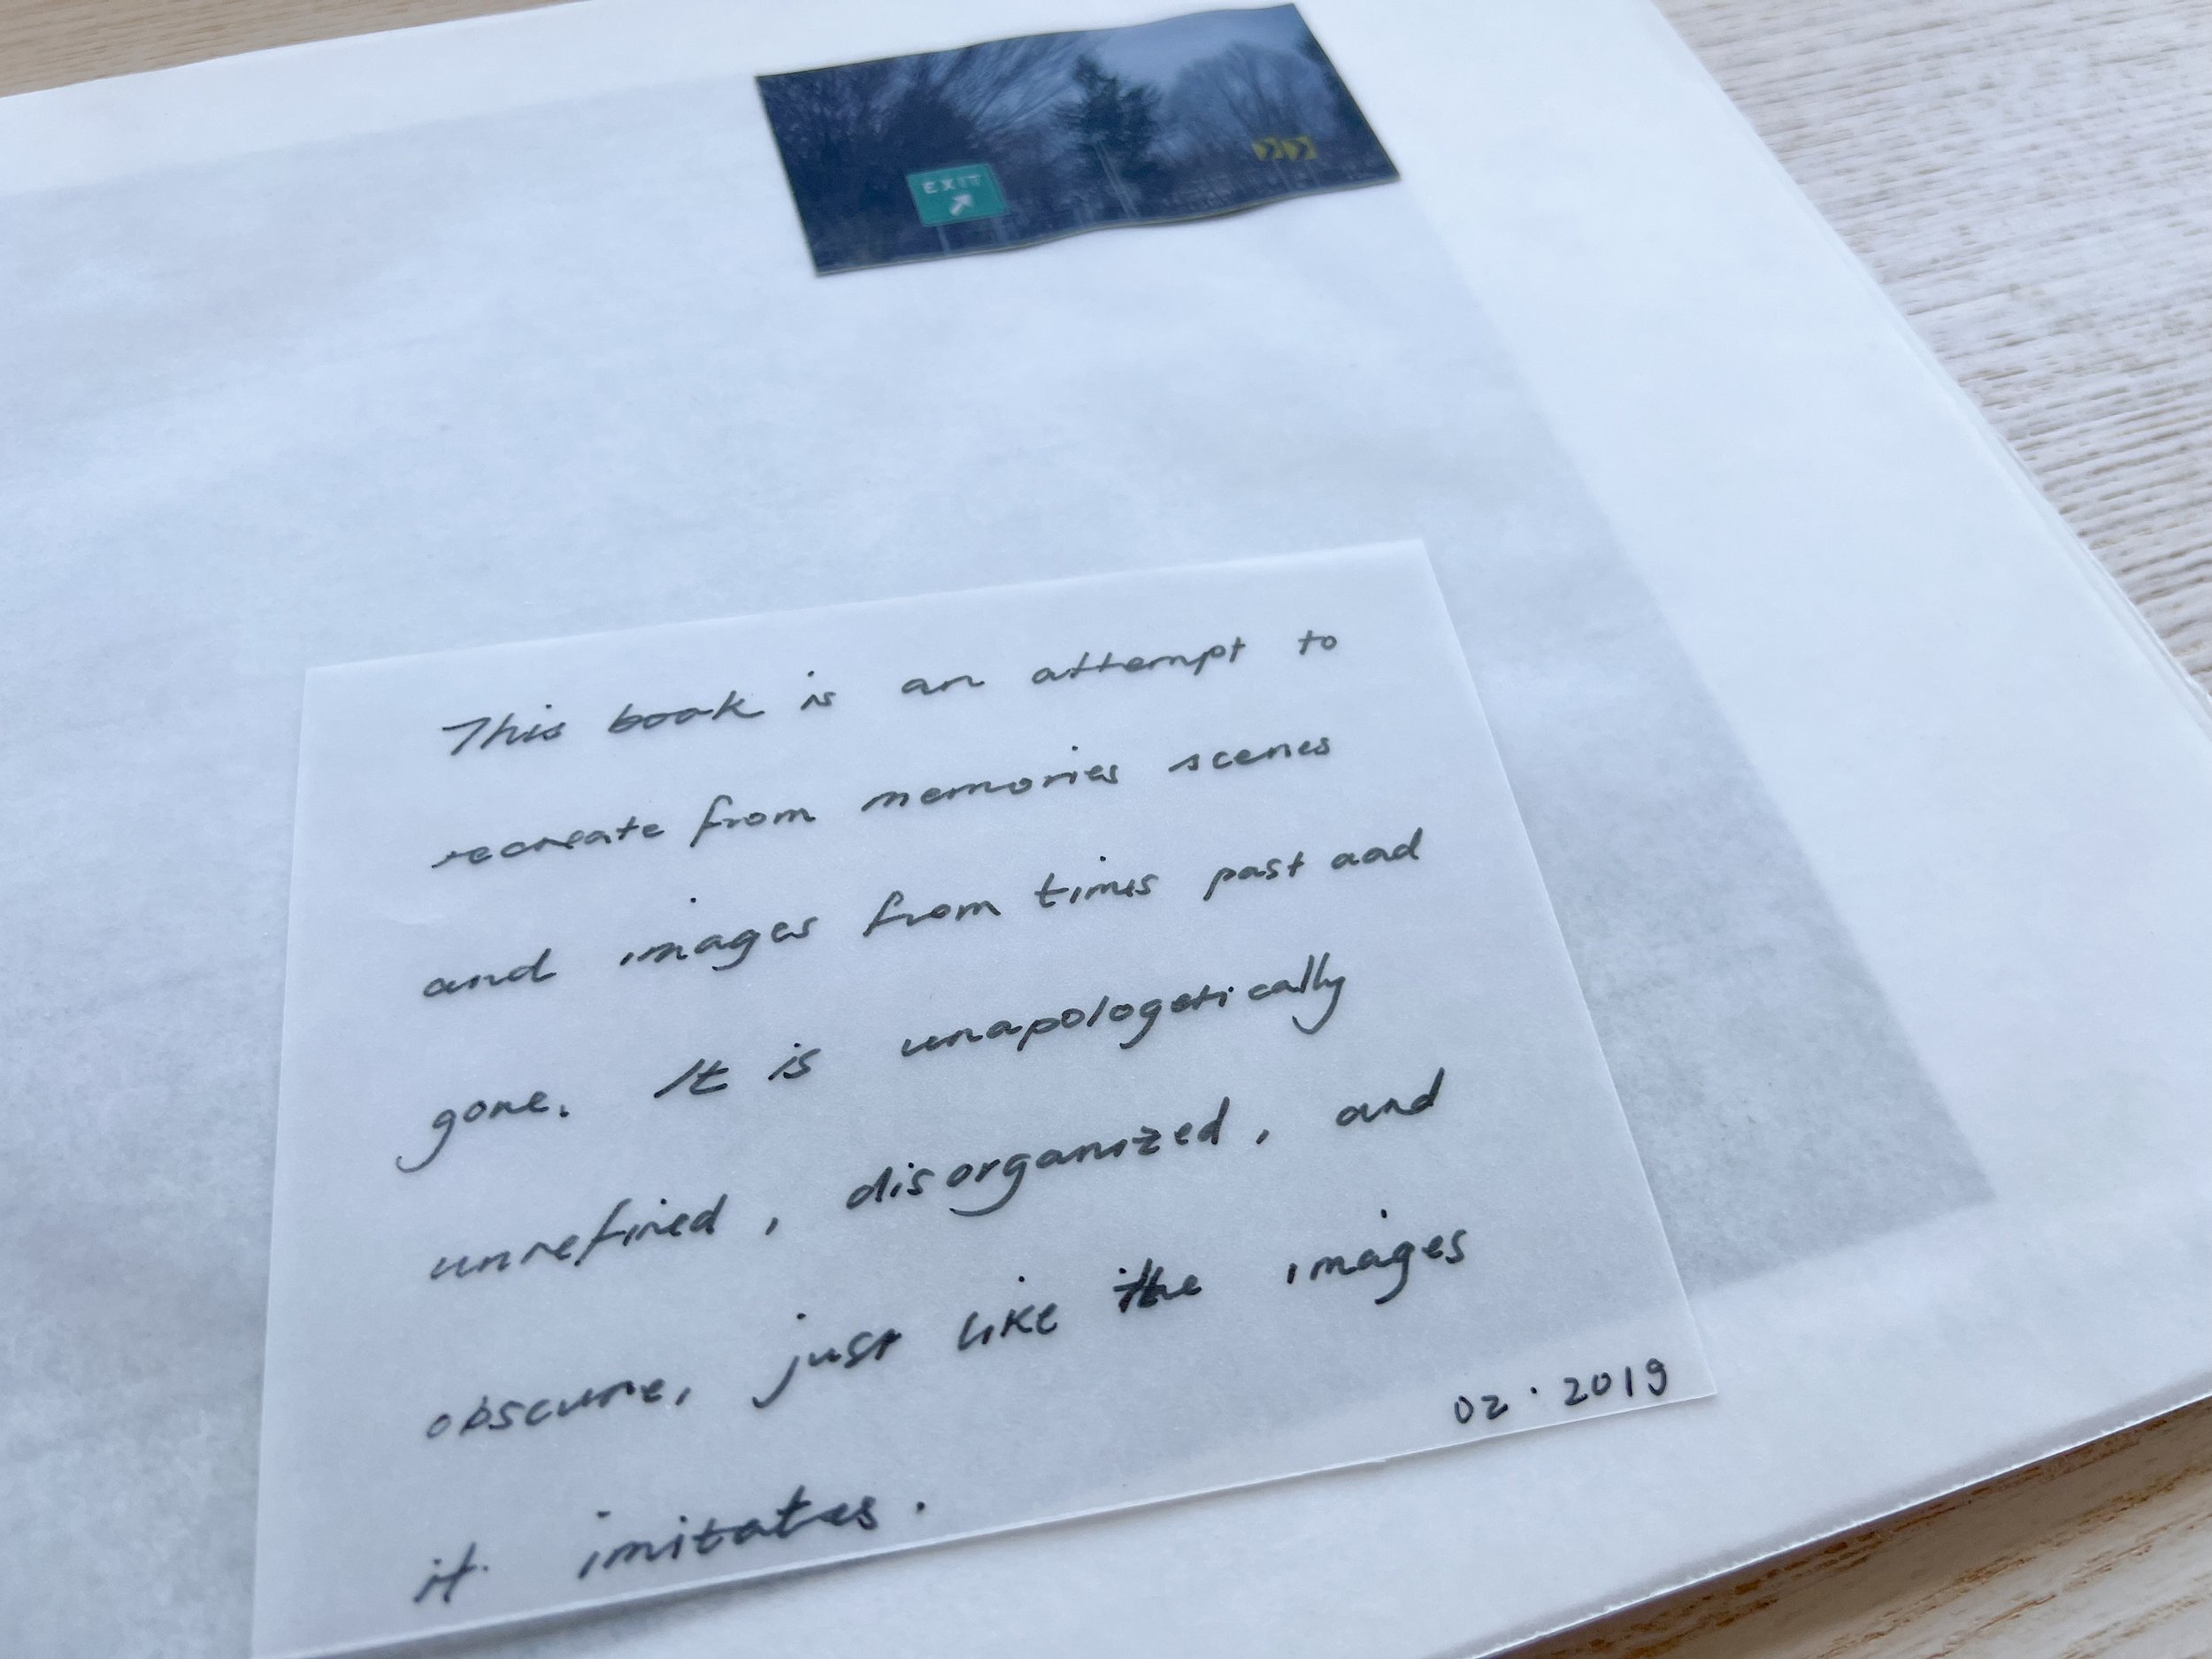 EXIT
This book is an attempt to
recreate from memories scenes
and images from times past and
gone. It is unapologetically
unrefined, disorganized, and
obscure, just like the images
it imitates.
02 · 2019